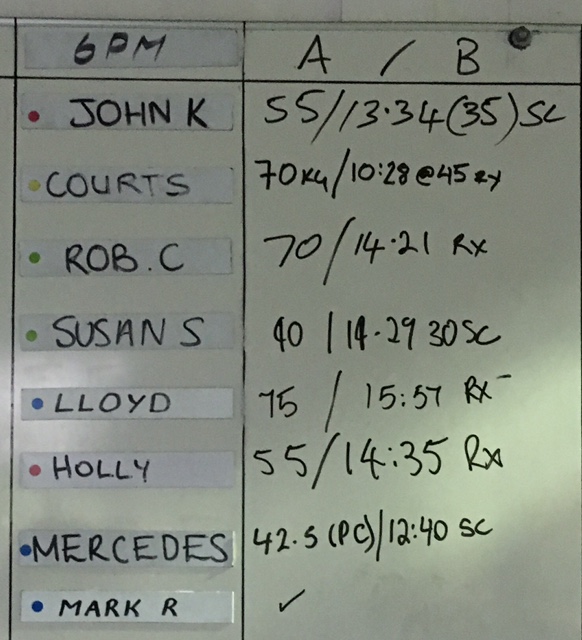 6PM A / B
JOHN K 55/13.34(35) SC
COURTS 70KG/10:28@45 RX
ROB.C 70/14.21 RX
SUSAN S 40 / 14.29 30SC
LLOYD 75 / 15:57 RX-
HOLLY 55/14:35 RX
MERCEDES 42.5 (PC)/12:40 SC
MARK R ✓